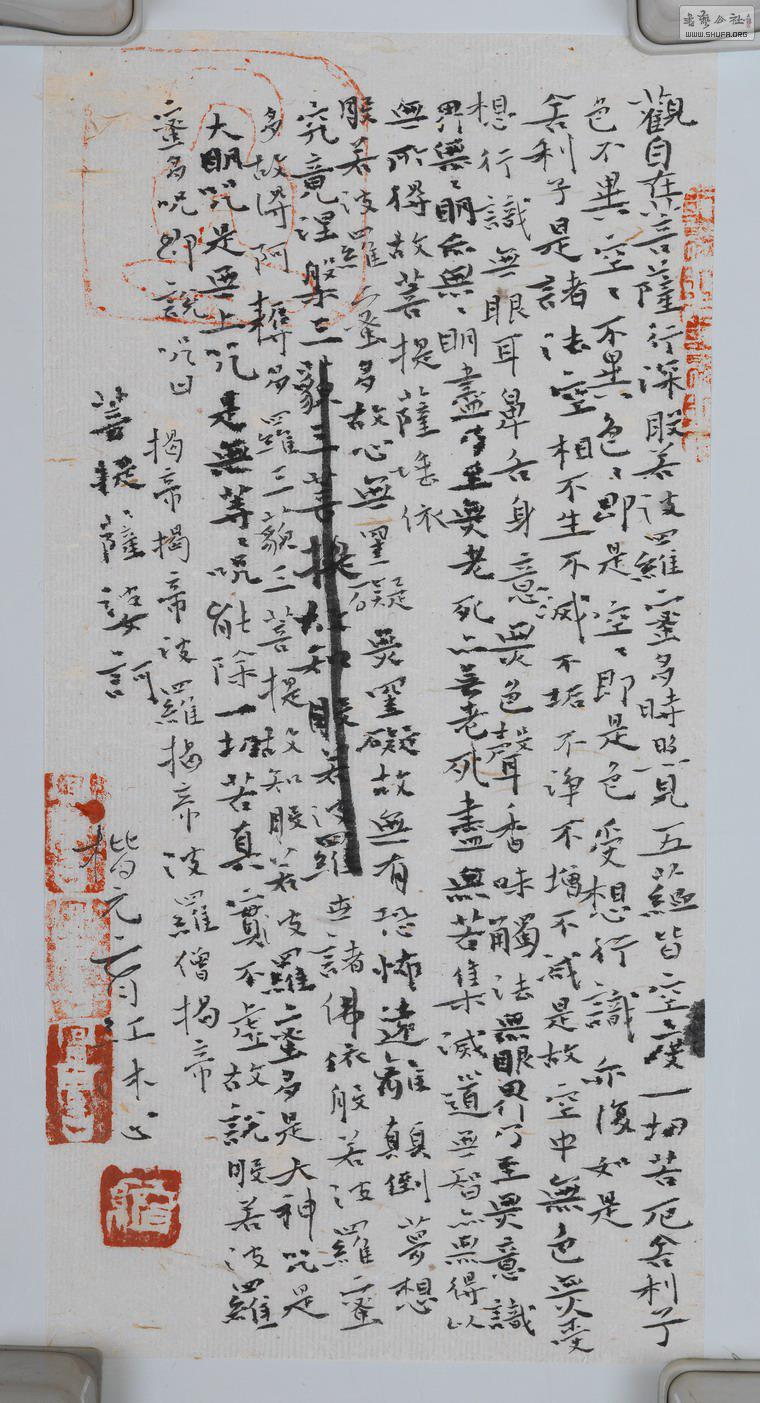 觀自在菩薩行深般若波羅蜜多時照見五蘊皆空度一切苦厄舍利子
色不異空〻不異色〻即是空〻即是色受想行識亦復如是
舍利子是諸法空相不生不滅不垢不淨不增不減是故空中無色無受
想行識無眼耳鼻舌身意無色聲香味觸法無眼界乃至無意識
界無〻明亦無〻明盡乃至無老死亦無老死盡無苦集滅道無智亦無得以
無所得故菩提薩埵依
般若波羅蜜多故心無罣礙無罣礙故無有恐怖遠離顛倒夢想
究竟涅槃三藐三菩提故知般若波羅世諸佛依般若波羅蜜
多故得阿耨多羅三藐三菩提故知般若波羅蜜多是大神咒是
大明咒是無上咒是無等〻咒能除一切苦真實不虛故說般若波羅
蜜多咒即說咒曰
揭帝揭帝波羅揭帝波羅僧揭帝
菩提薩婆訶
書藝公社
WWW.SHUFA.ORG